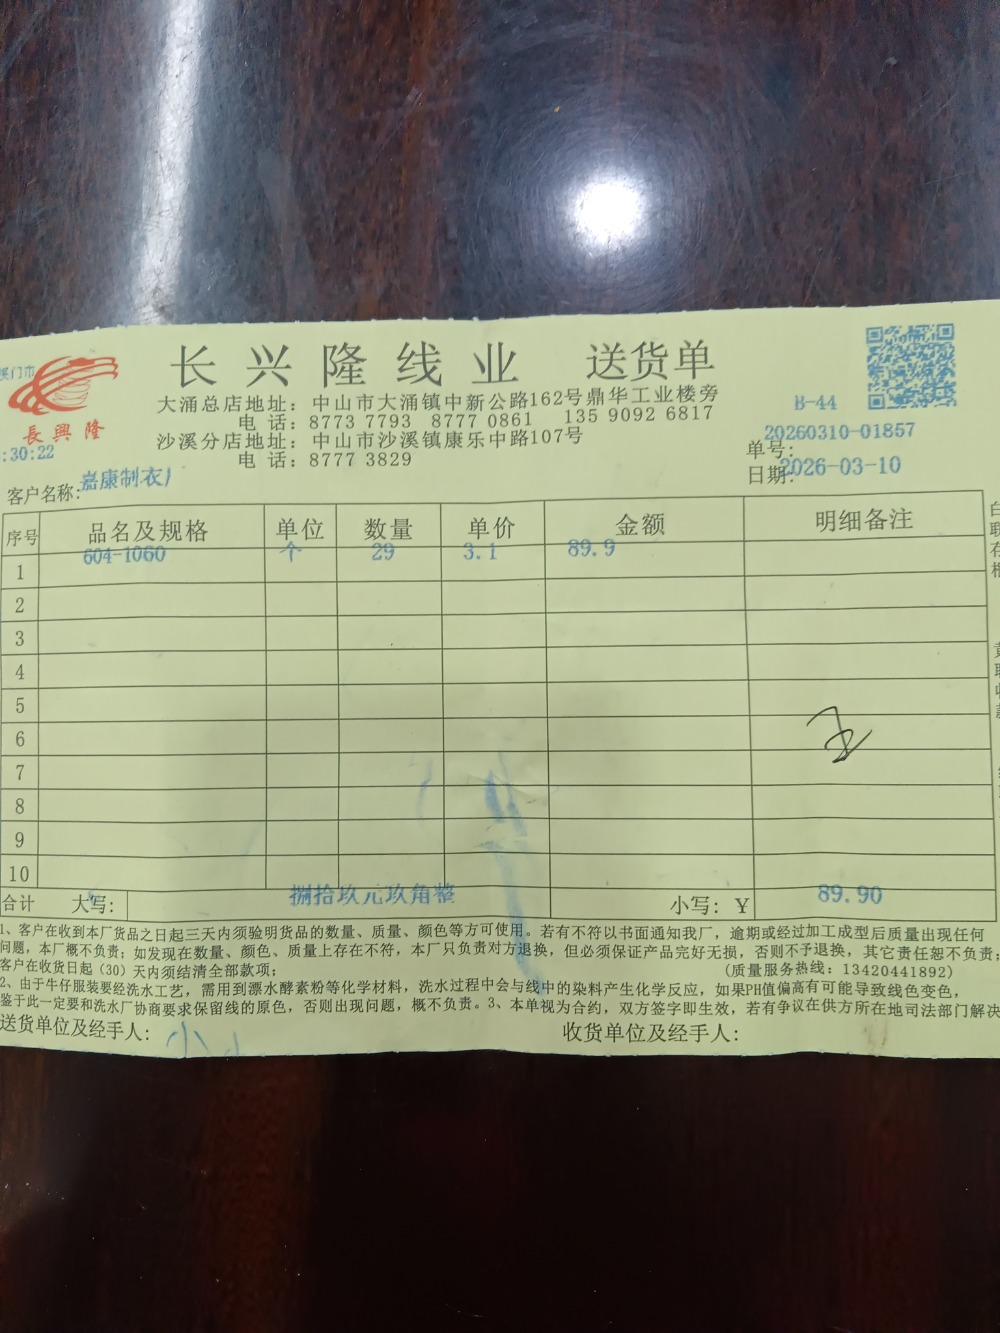 长兴隆线业 送货单
溪门市
長興隆
大涌总店地址：中山市大涌镇中新公路162号鼎华工业楼旁
电 话：8773 7793 8777 0861 135 9092 6817
沙溪分店地址：中山市沙溪镇康乐中路107号
电 话：8777 3829
B-44
:30:22
单号：20260310-01857
日期：2026-03-10
客户名称：嘉康制衣厂
序号 品名及规格 单位 数量 单价 金额 明细备注
1 604-1060 个 29 3.1 89.9
2
3
4
5
6
7
8
9
10
合计 大写： 捌拾玖元玖角整 小写：￥ 89.90
1、客户在收到本厂货品之日起三天内须验明货品的数量、质量、颜色等方可使用。若有不符以书面通知我厂，逾期或经过加工成型后质量出现任何
问题，本厂概不负责；如发现在数量、颜色、质量上存在不符，本厂只负责对方退换，但必须保证产品完好无损，否则不予退换，其它责任恕不负责；
客户在收货日起（30）天内须结清全部款项； （质量服务热线：13420441892）
2、由于牛仔服装要经洗水工艺，需用到漂水酵素粉等化学材料，洗水过程中会与线中的染料产生化学反应，如果PH值偏高有可能导致线色变色，
鉴于此一定要和洗水厂协商要求保留线的原色，否则出现问题，概不负责。3、本单视为合约，双方签字即生效，若有争议在供方所在地司法部门解决
送货单位及经手人： 收货单位及经手人：